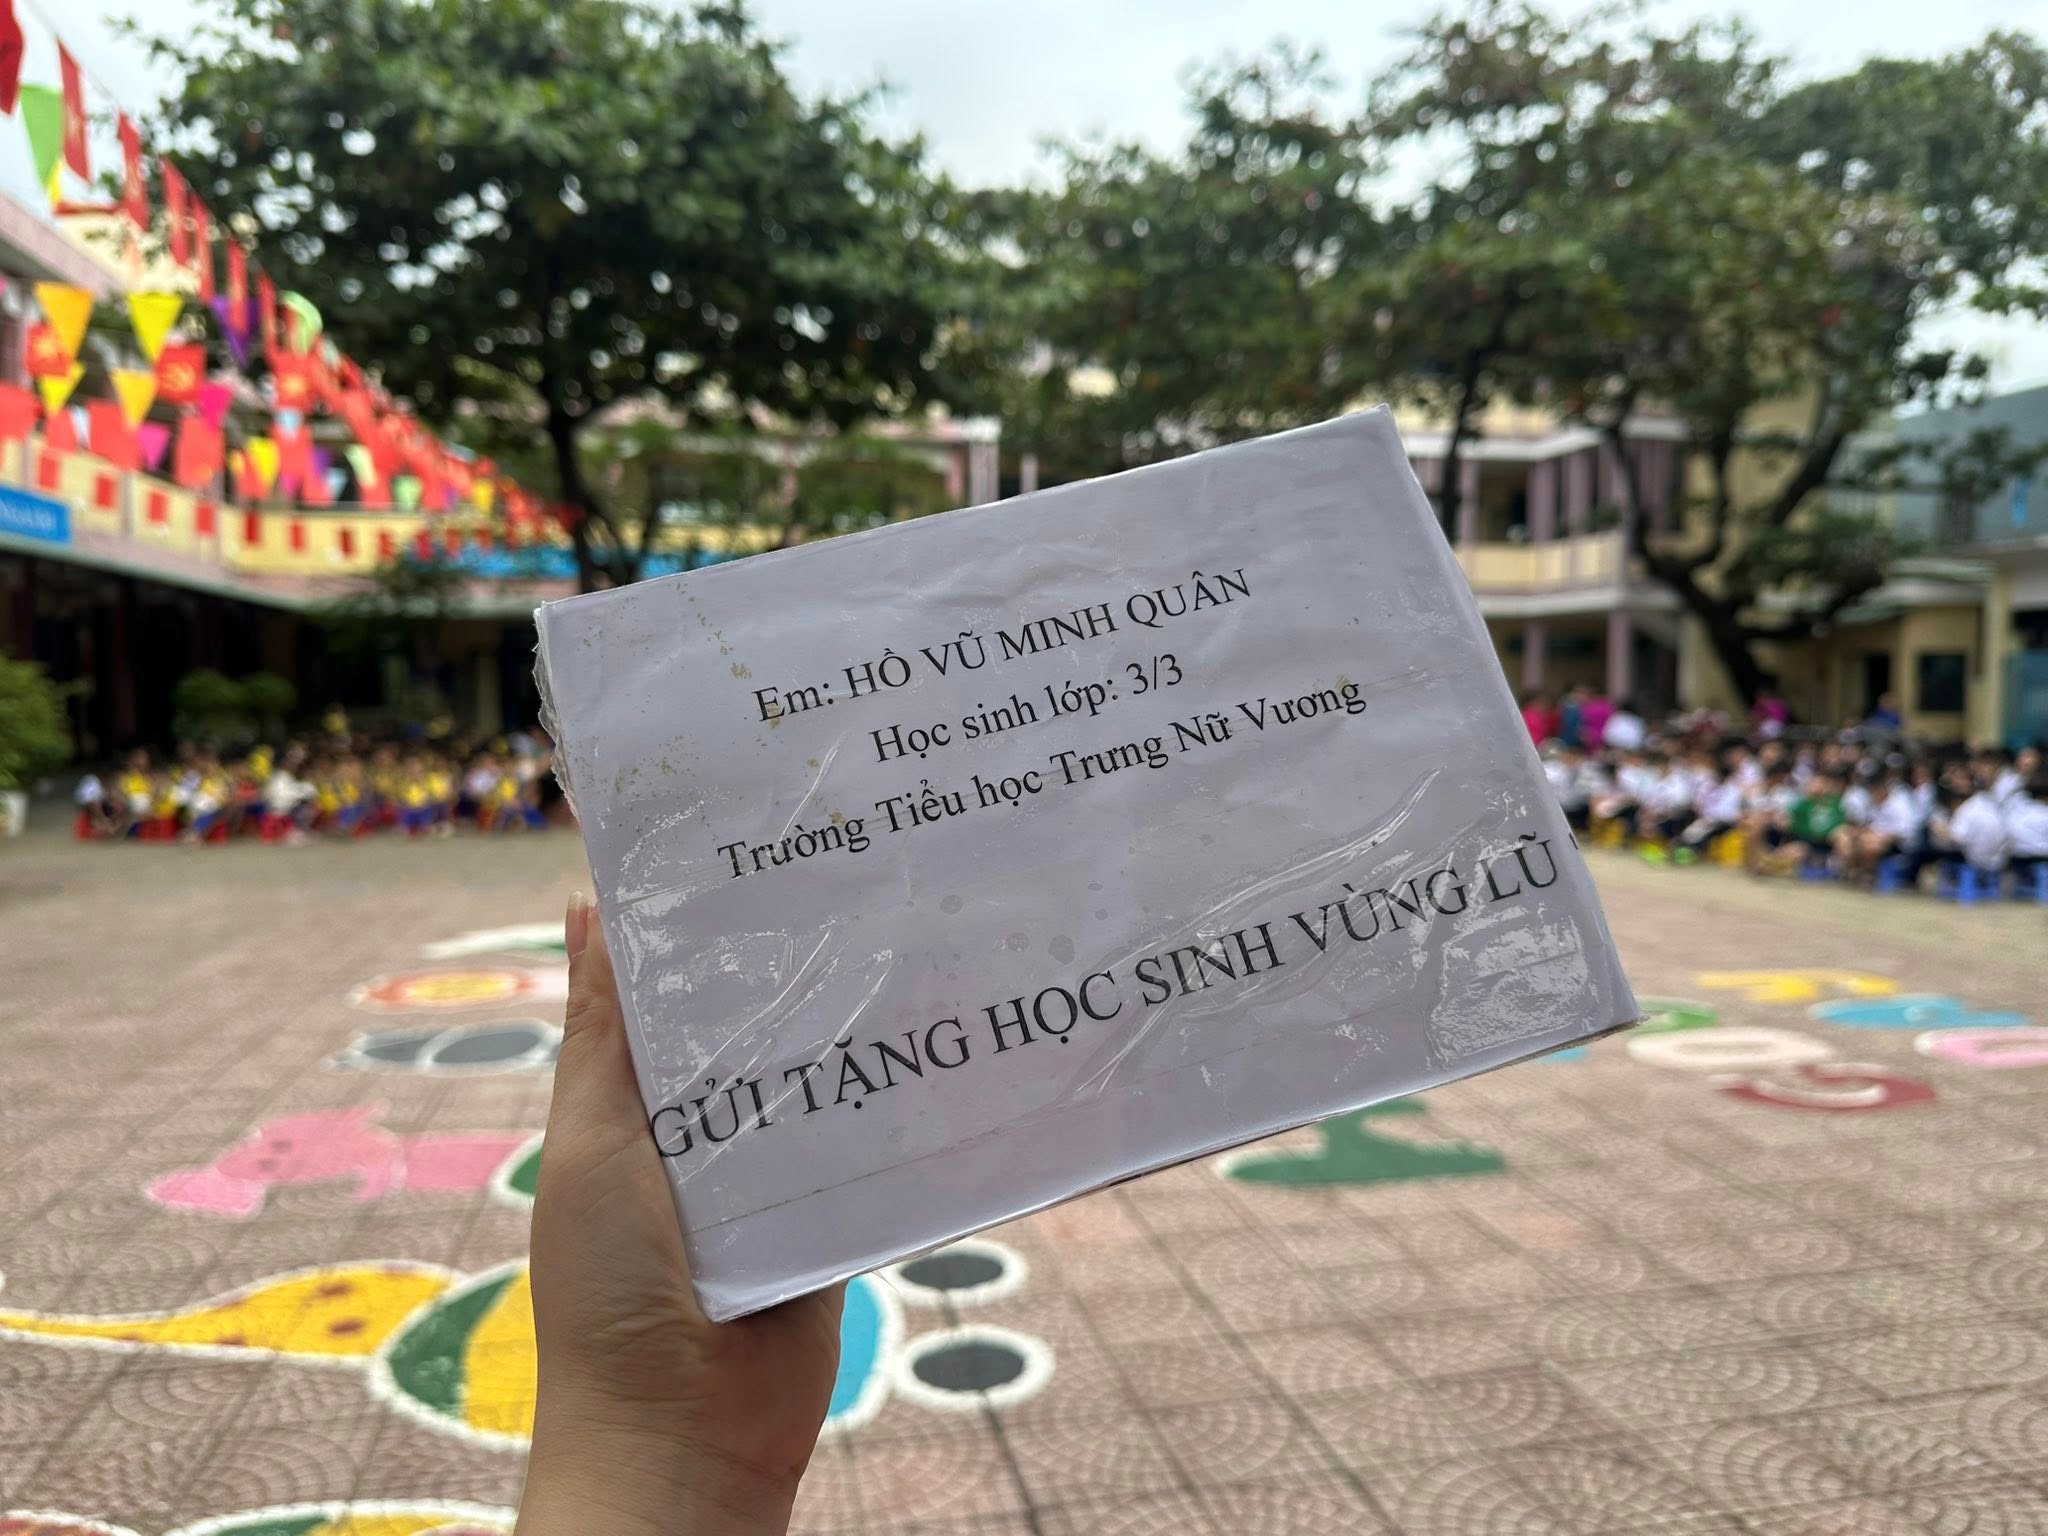 Em: HỒ VŨ MINH QUÂN
Học sinh lớp: 3/3
Trường Tiểu học Trưng Nữ Vương
GỬI TẶNG HỌC SINH VÙNG LŨ